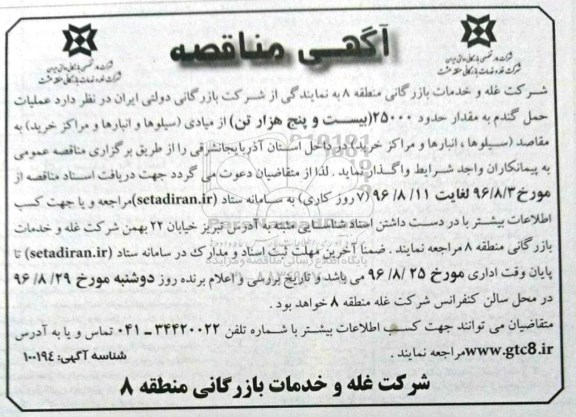 آگهی مناقصه
شرکت غله و خدمات بازرگانی منطقه ۸ به نمایندگی از شرکت بازرگانی دولتی ایران در نظر دارد عملیات
حمل گندم به مقدار حدود ۲۵۰۰۰(بیست و پنج هزار تن) از مبادی (سیلوها و انبارها و مراکز خرید) به
مقاصد (سیلوها ، انبارها و مراکز خرید) در داخل استان آذربایجانشرقی را از طریق برگزاری مناقصه عمومی
به پیمانکاران واجد شرایط واگذار نماید . لذا از متقاضیان دعوت می گردد جهت دریافت اسناد مناقصه از
مورخ ۹۶/۸/۳ لغایت ۹۶/۸/۱۱ (۷ روز کاری) به سامانه ستاد (setadiran.ir)مراجعه و یا جهت کسب
اطلاعات بیشتر با در دست داشتن اسناد شناسایی مثبته به آدرس تبریز خیابان ۲۲ بهمن شرکت غله و خدمات
بازرگانی منطقه ۸ مراجعه نمایند . ضمنا آخرین مهلت ثبت اسناد و مدارک در سامانه ستاد (setadiran.ir) تا
پایان وقت اداری مورخ ۹۶/۸/۲۵ می باشد و تاریخ بررسی و اعلام برنده روز دوشنبه مورخ ۹۶/۸/۲۹
در محل سالن کنفرانس شرکت غله منطقه ۸ خواهد بود .
متقاضیان می توانند جهت کسب اطلاعات بیشتر با شماره تلفن ۳۴۴۲۰۰۲۲ - ۰۴۱ تماس و یا به آدرس
www.gtc8.ir مراجعه نمایند . شناسه آگهی: ۱۰۰۱۹۴
شرکت غله و خدمات بازرگانی منطقه ۸